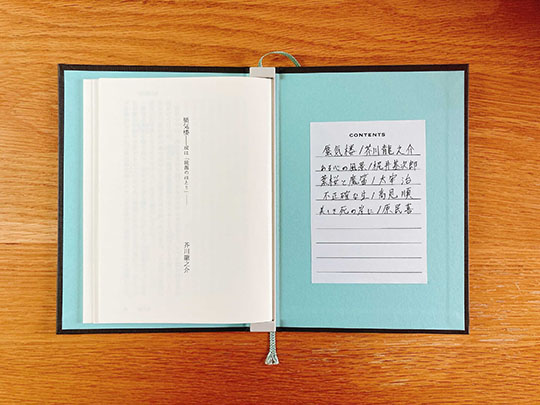 蜃気楼――或は「続海のほとり」――
芥川龍之介
CONTENTS
蜃気楼/芥川龍之介
ある心の風景/梶井基次郎
葉桜と魔笛/太宰治
不正確な生/高見順
美しき死の岸に/原民喜